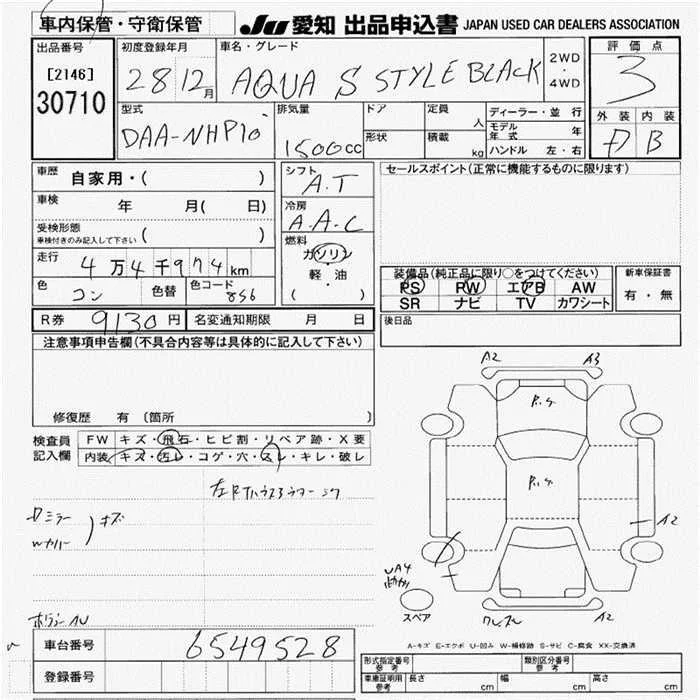 車内保管・守衛保管
JU 愛知 出品申込書 JAPAN USED CAR DEALERS ASSOCIATION
出品番号
[2146]
30710
初度登録年月
28 12月
車名・グレード
AQUA S STYLE BLACK
2WD
・
4WD
評価点
3
外装 内装
D B
型式
DAA-NHP10
排気量
1500cc
ドア
形状
定員
人
積載
kg
ディーラー・並行
モデル年式 年
ハンドル 左・右
車歴 自家用・( )
車検 年 月( 日)
受検形態
車検付きのみ記入して下さい ( )
走行 4万4千974km
色 コン 色替 色コード 8S6
シフト
A.T
冷房
A.A.C
燃料
ガソリン
軽・油
( )
セールスポイント(正常に機能するものに限ります)
装備品(純正品に限り○をつけてください)
PS PW エアB AW
SR ナビ TV カワシート
新車保証書
有・無
R券 9130円 名変通知期限 月 日
後日品
注意事項申告欄(不具合内容等は具体的に記入して下さい)
修復歴 有 〔箇所 〕
検査員
記入欄
FW キズ・飛石・ヒビ割・リペア跡・X要
内装 キズ・汚レ・コゲ・穴・スレ・キレ・破レ
Dミラー
キズ
A2 A3
A2
UA4
スペア
A2
車台番号 6549528
登録番号
A-キズ E-エクボ U-凹み W-補修跡 S-サビ C-腐食 XX-交換済
形式指定番号
参考
類別区分番号
参考
車庫証明用
参考
長さ cm 幅 cm 高さ cm